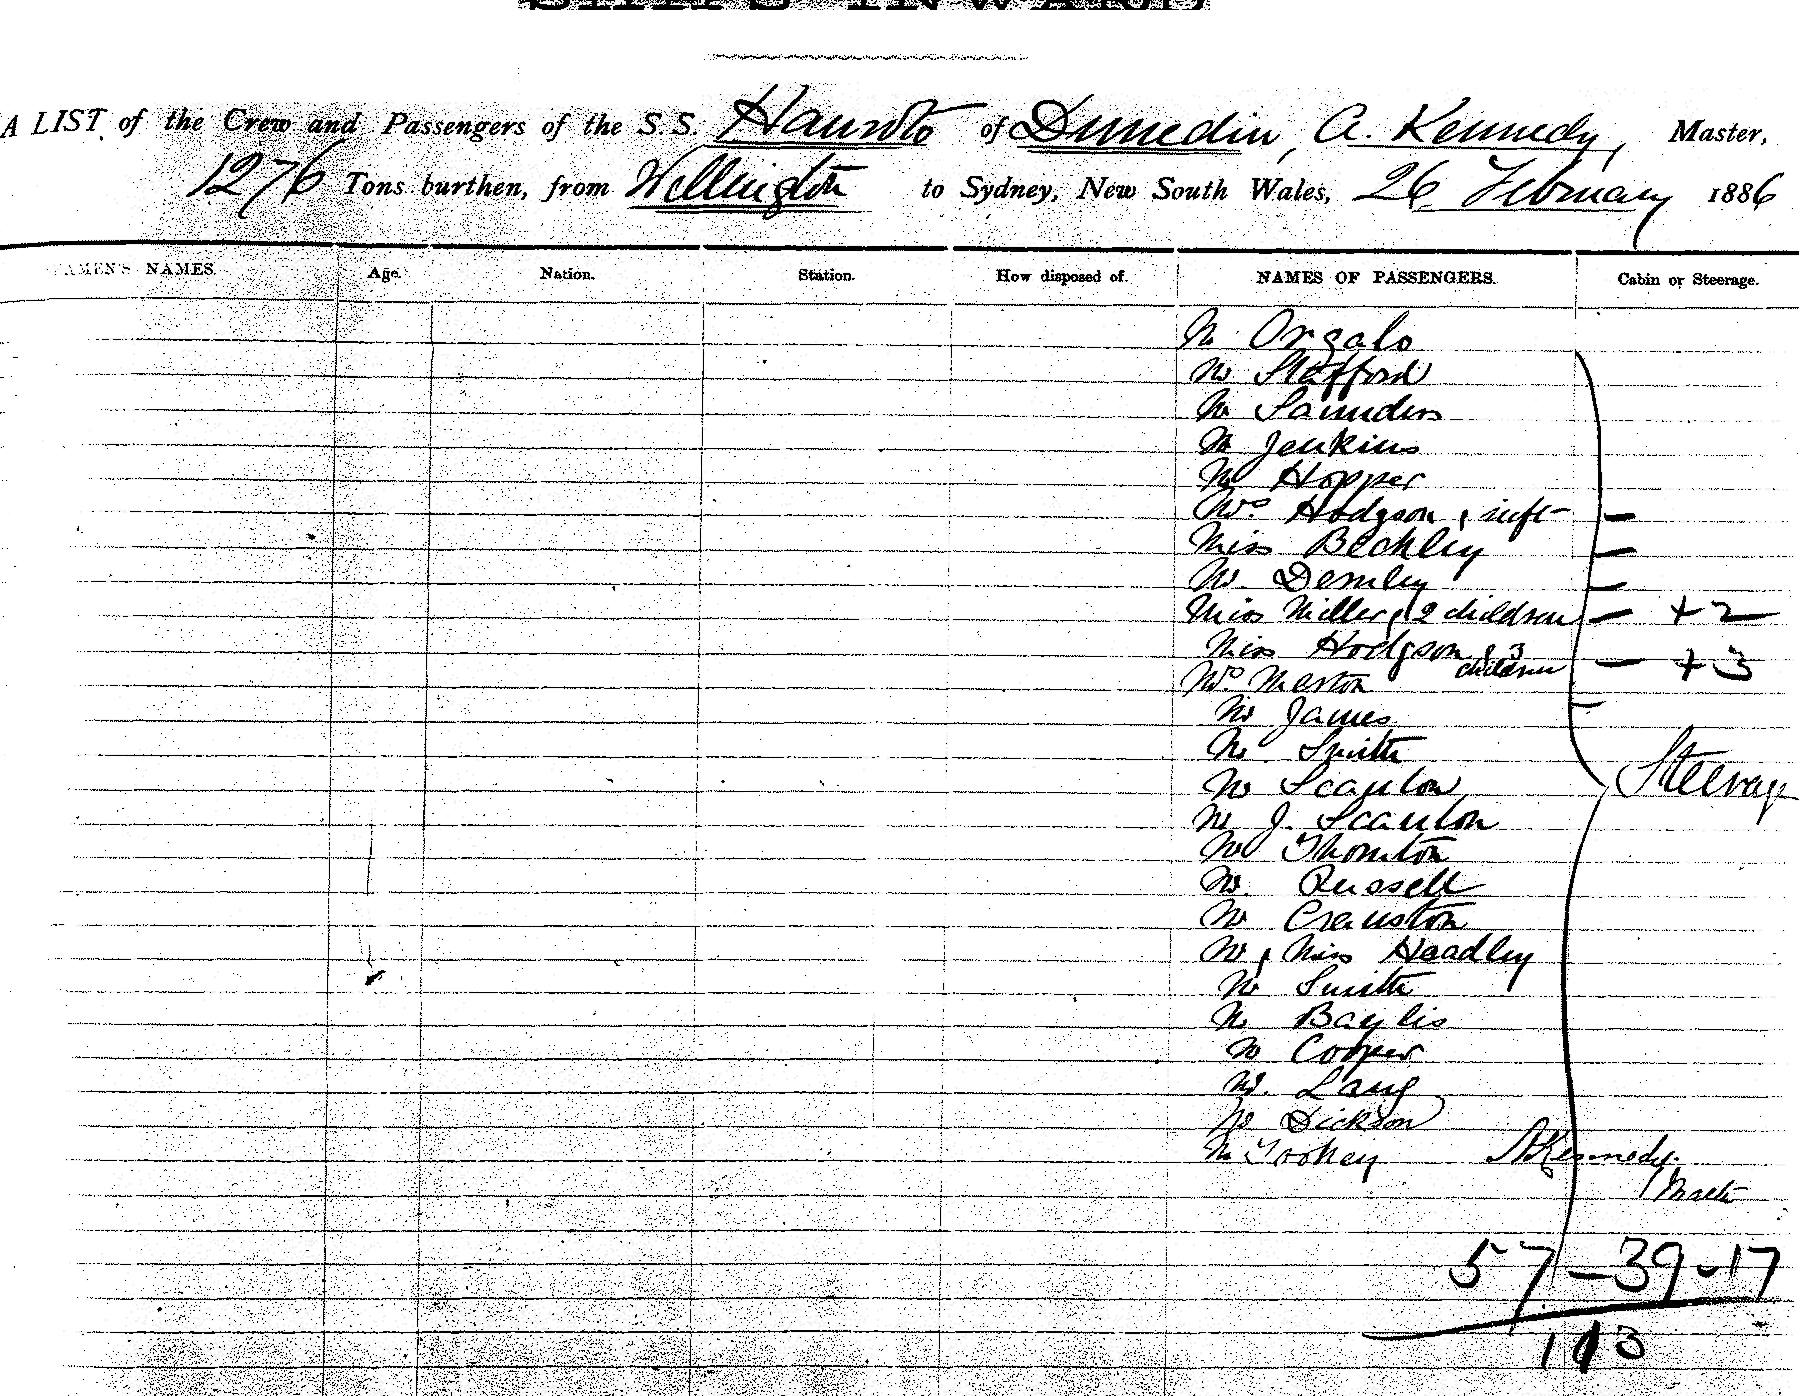 SHIPS INWARD
A LIST of the Crew and Passengers of the S.S. Hauroto of Dunedin, A. Kennedy, Master,
1276 Tons burthen, from Wellington to Sydney, New South Wales, 26 February 1886
NAMES. Age. Nation. Station. How disposed of. NAMES OF PASSENGERS. Cabin or Steerage.
Mr Orgalo
Mr Stafford
Mr Saunders
Mr Jenkins
Mr Hopper
Mrs Hodgson & inft –
Miss Beckley –
Mr Demley –
Miss Miller & 2 children – +2
Miss Hodgson & 3 children – +3
Mrs Merton –
Mr James
Mr Smith
Mr Scanlon
Steerage
Mr J. Scanlon
Mr Thornton
Mr Russell
Mr Cranston
Mr & Miss Headley
Mr Smith
Mr Baylis
Mr Cooper
Mr. Lang
Mr Dickson
Mr Tookey A Kennedy.
Master
57 – 39 – 17
113